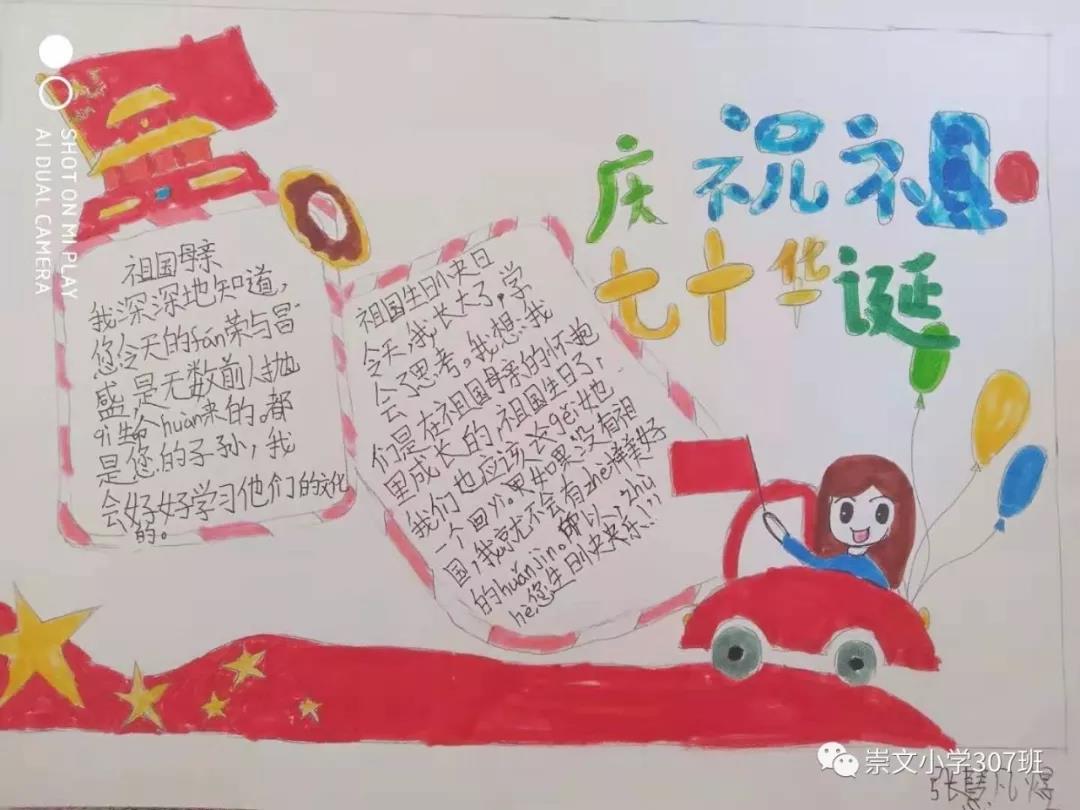 SHOT ON MI PLAY
AI DUAL CAMERA
庆祝祖
七十华诞
祖国母亲
我深深地知道,
您今天的fán荣与冒
盛,是无数前人抛
qì生命huàn来的。都
是您的子孙,我
会好好学习他们的文化
的。
祖国生日快乐日
今天,我长大了,学
会了思考。我想:我
们是在祖国母亲的怀抱
里成长的,祖国生日了,
我们也应该送gěi她
一个回yì。要如果没有祖
国,我就不会有zhè样美好
的huánjìng。所以,zhù
hè您生日快乐!”
崇文小学307班
张慧凡